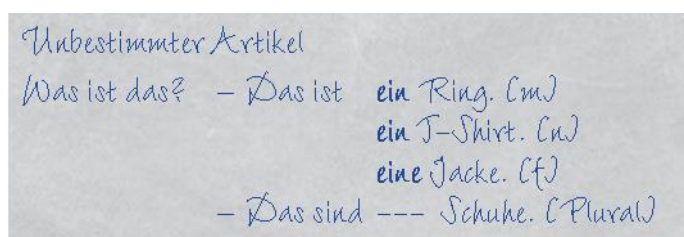 Unbestimmter Artikel
Was ist das? – Das ist ein Ring. (m)
ein T-Shirt. (n)
eine Jacke. (f)
– Das sind --- Schuhe. (Plural)